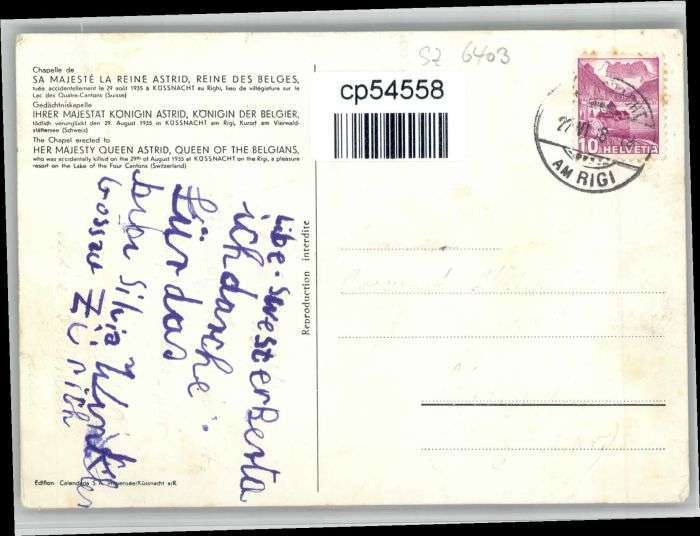 Chapelle de
SA MAJESTÉ LA REINE ASTRID, REINE DES BELGES,
tuée accidentellement le 29 août 1935 à KÜSSNACHT au Righi, lieu de villégiature sur le
Lac des Quatre-Cantons (Suisse)
Gedächtniskapelle
IHRER MAJESTÄT KÖNIGIN ASTRID, KÖNIGIN DER BELGIER,
tödlich verunglückt den 29. August 1935 in KÜSSNACHT am Rigi, Kurort am Vierwald-
stättersee (Schweiz)
The Chapel erected to
HER MAJESTY QUEEN ASTRID, QUEEN OF THE BELGIANS,
who was accidentally killed on the 29th of August 1935 at KÜSSNACHT on the Rigi, a pleasure
resort on the Lake of the Four Cantons (Switzerland)
SZ 6403
cp54558
10 HELVETIA
AM RIGI
libe. swester Berta
ich danche
für das
Silvia Winkler
Gossau Zürich
Reproduction interdite
Edition Calendaria S.A. Immensee/Küssnacht a/R.